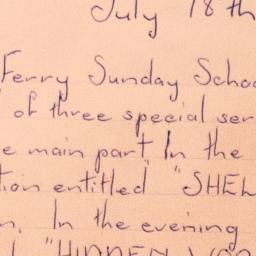 July 18th
Ferry Sunday Schoo
of three special ser
e main part. In the
tion entitled "SHEL
n. In the evening
"HIDDEN